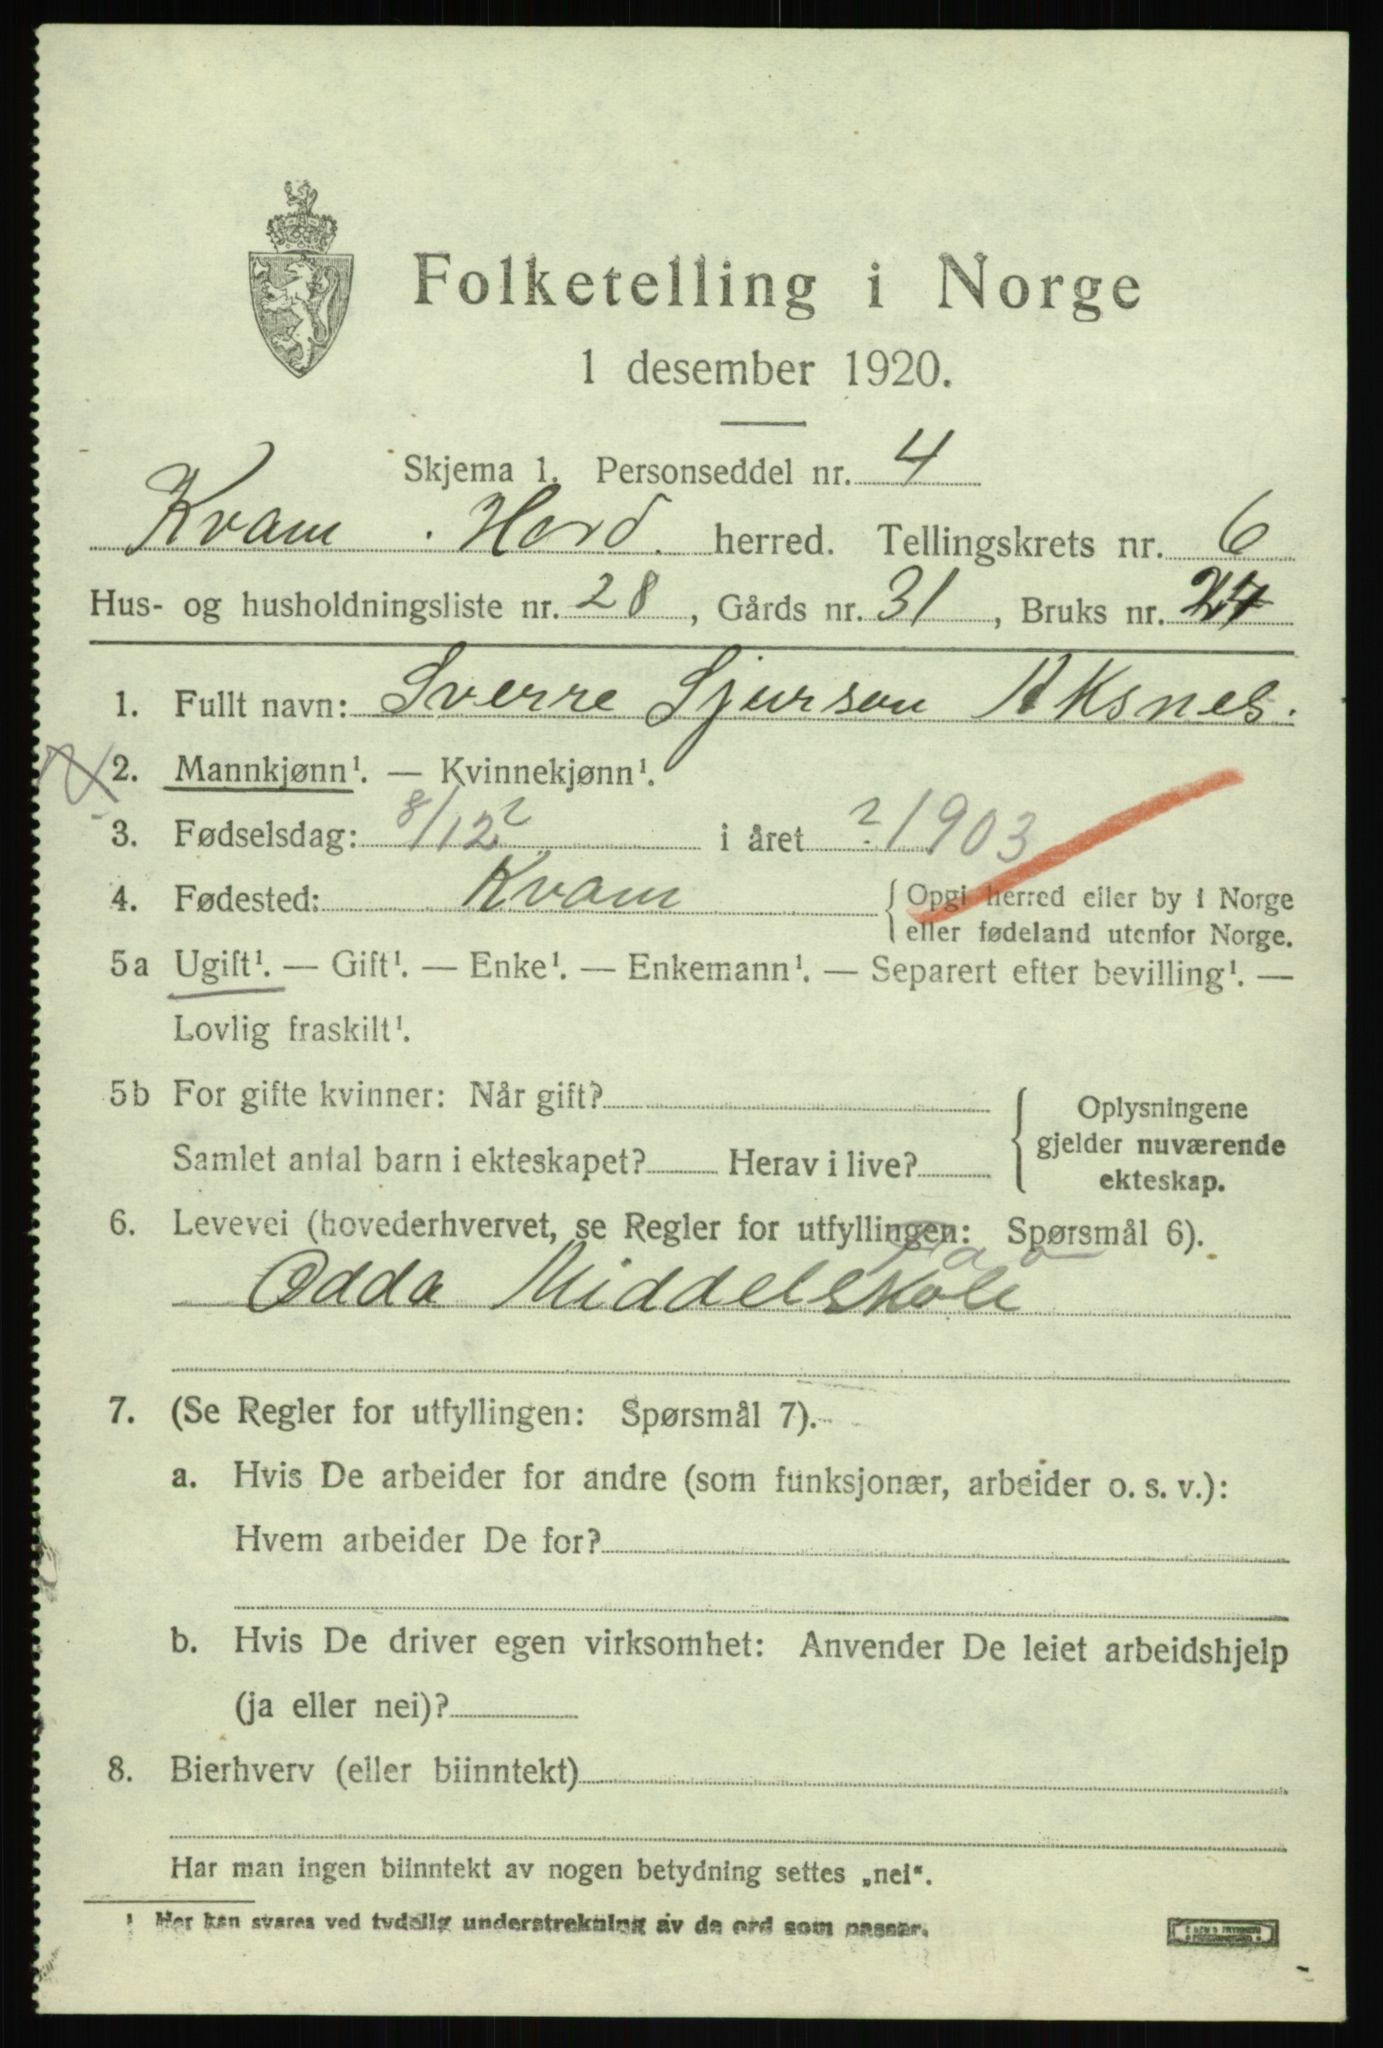 Folketelling i Norge
1 desember 1920.
Skjema 1. Personseddel nr. 4
Kvam. Hord. herred. Tellingskrets nr. 6
Hus- og husholdningsliste nr. 28, Gårds nr. 31, Bruks nr. 24
1. Fullt navn: Sverre Sjurson Aksnes.
2. Mannkjønn¹. — Kvinnekjønn¹.
3. Fødselsdag: 8/12 ? i året ? 1903
4. Fødested: Kvam { Opgi herred eller by i Norge
eller fødeland utenfor Norge.
5a Ugift¹. — Gift¹. — Enke¹. — Enkemann¹. — Separert efter bevilling¹. —
Lovlig fraskilt¹.
5b For gifte kvinner: Når gift?
Samlet antal barn i ekteskapet? Herav i live?
{ Oplysningene
gjelder nuværende
ekteskap.
6. Levevei (hovederhvervet, se Regler for utfyllingen: Spørsmål 6).
Odda Middelskole
7. (Se Regler for utfyllingen: Spørsmål 7).
a. Hvis De arbeider for andre (som funksjonær, arbeider o. s. v.):
Hvem arbeider De for?
b. Hvis De driver egen virksomhet: Anvender De leiet arbeidshjelp
(ja eller nei)?
8. Bierhverv (eller biinntekt)
Har man ingen biinntekt av nogen betydning settes „nei“.
¹ Her kan svares ved tydelig understrekning av de ord som passer.